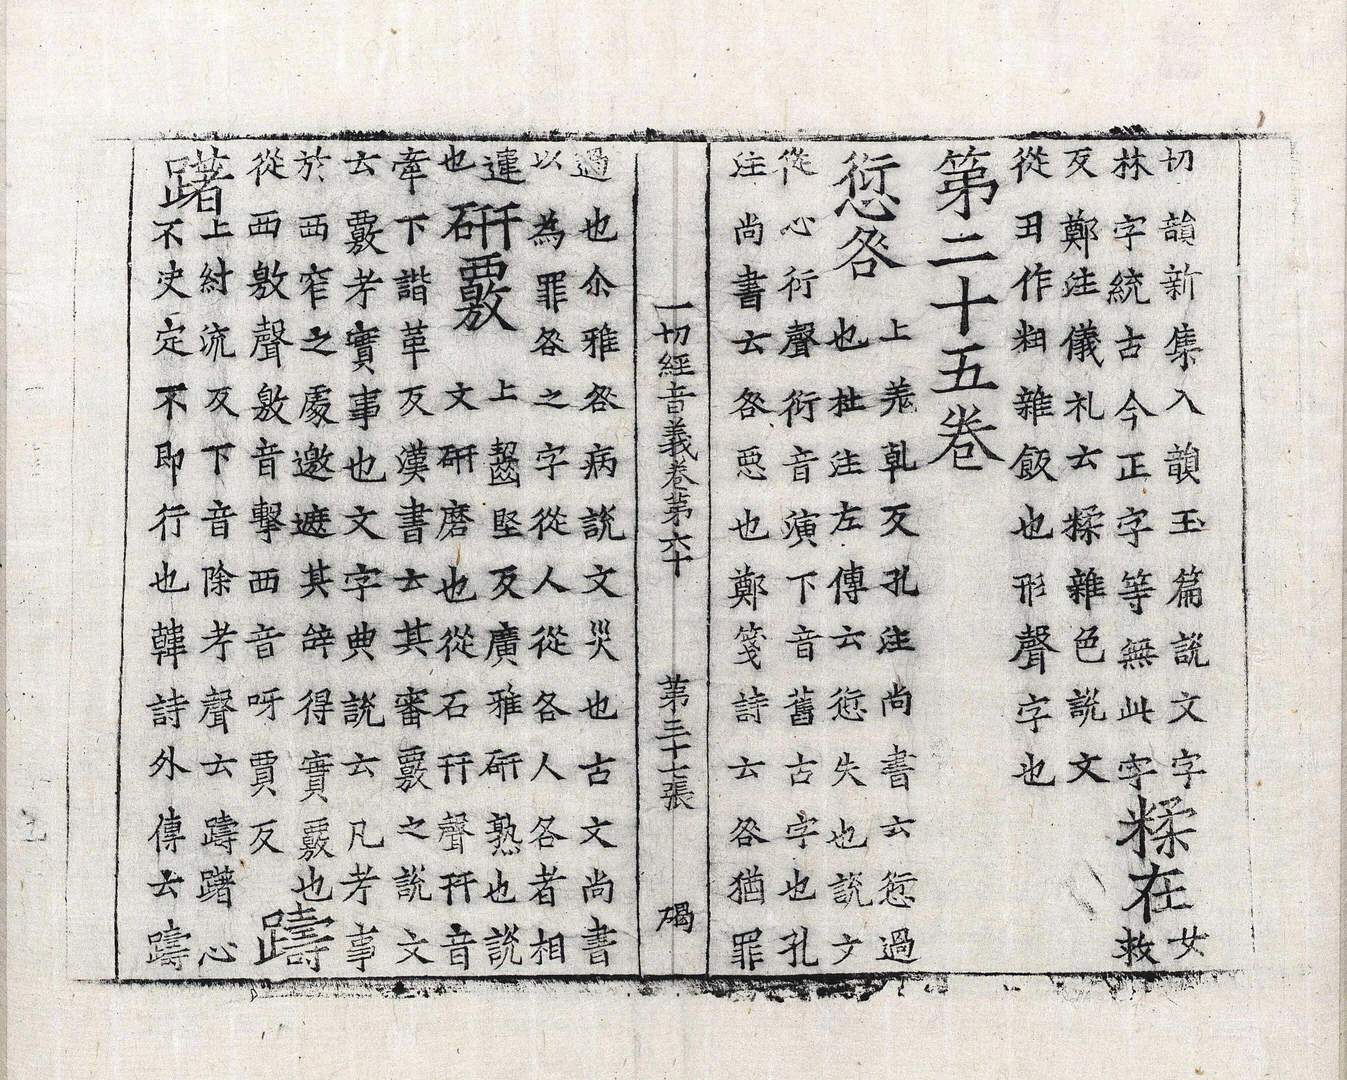 切韻新集入韻玉篇說文字
林字統古今正字等無此字
糅在
女
救
反鄭注儀礼云糅雜色說文
從丑作粈雜飯也形聲字也
第二十五卷
愆咎
上羗乹反孔注尚書云愆過
也杜注左傳云愆失也說文
從心衍聲衍音演下音舊古字也孔
注尚書云咎惡也鄭箋詩云咎猶罪
一切經音義卷第六十 第三十七張 碣
過也尒雅咎病說文災也古文尚書
以為罪咎之字從人從各人各者相
違
也
研覈
上齧堅反廣雅研熟也說
文研磨也從石幵聲幵音
牽下諧革反漢書云其審覈之說文
云覈考實事也文字典說云凡考事
於西窄之處邀遮其辝得實覈也
從西敫聲敫音擊西音呀賈反
躊
躇
上紂流反下音除考聲云躊躇心
不決定不即行也韓詩外傳云躊